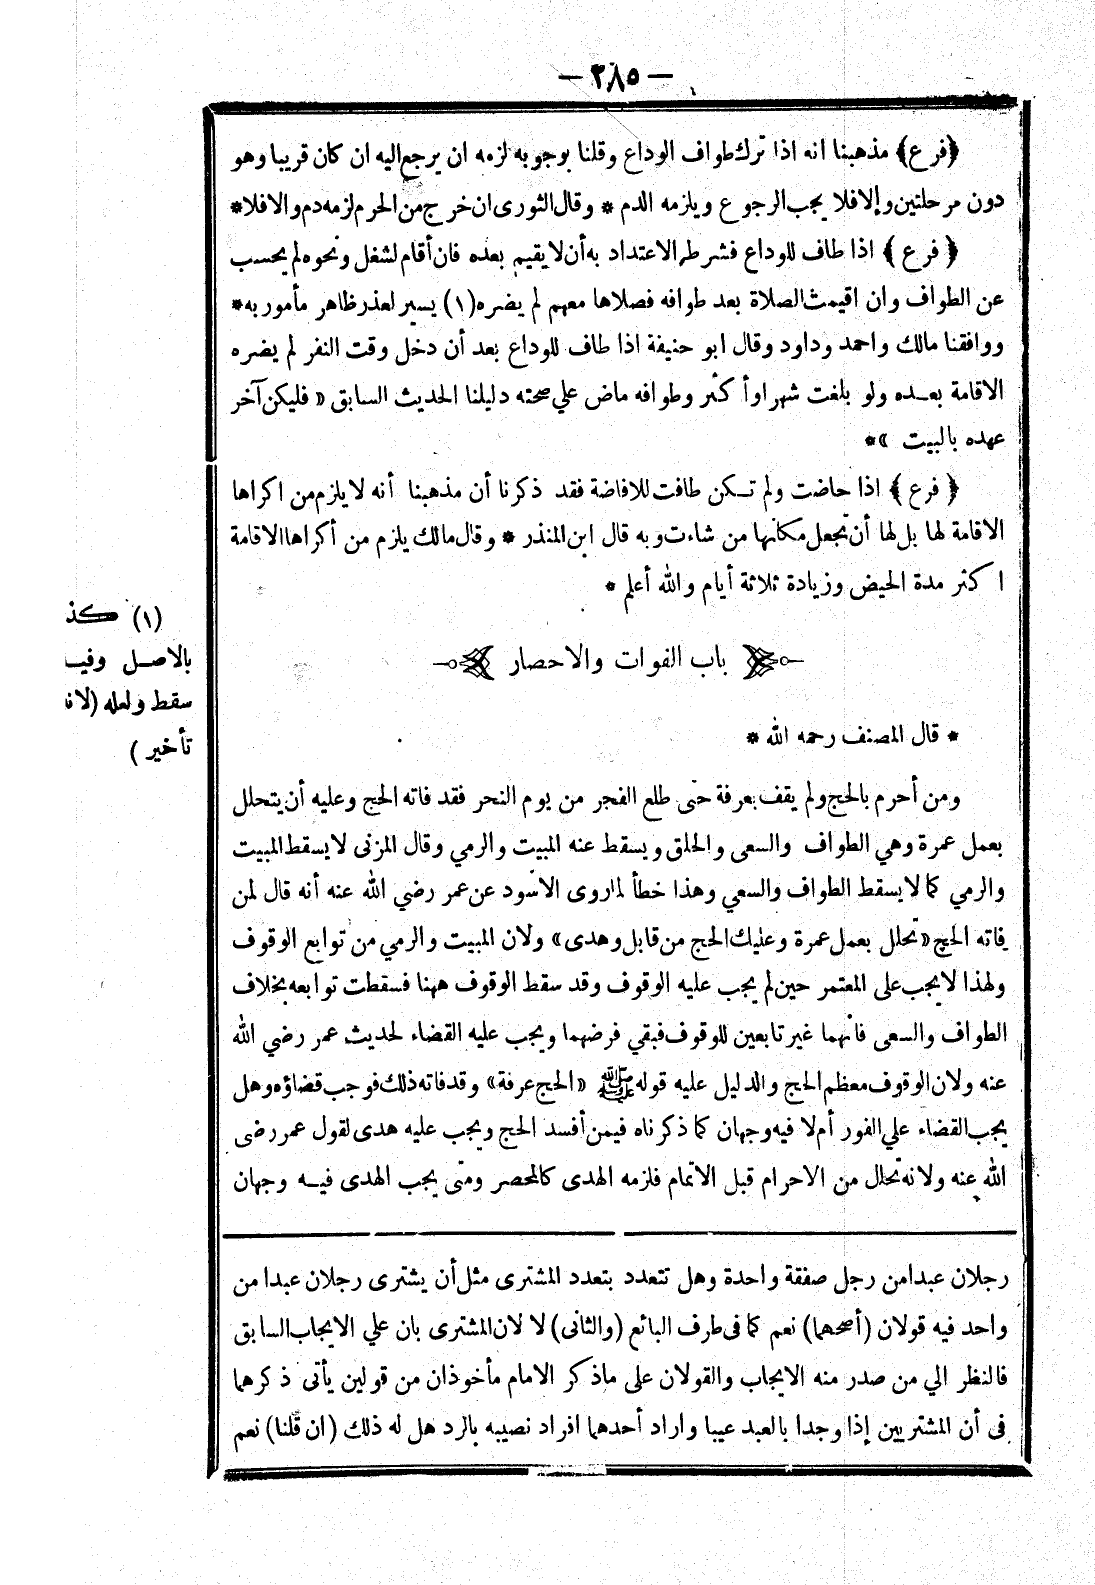 — ٢٨٥ —
﴿فرع﴾ مذهبنا انه اذا ترك طواف الوداع وقلنا بوجوبه لزمه ان يرجع اليه ان كان قريبا وهو
دون مرحلتين وإلا فلا يجب الرجوع ويلزمه الدم * وقال الثورى ان خرج من الحرم لزمه دم والافلا *
﴿فرع﴾ اذا طاف للوداع فشرط الاعتداد به أن لا يقيم بعده فان أقام لشغل ونحوه لم يحسب
عن الطواف وان اقيمت الصلاة بعد طوافه فصلاها معهم لم يضره (١) يسير لعذر ظاهر مأمور به *
ووافقنا مالك واحمد وداود وقال ابو حنيفة اذا طاف للوداع بعد أن دخل وقت النفر لم يضره
الاقامة بعده ولو بلغت شهرا وأكثر وطوافه ماض علي صحته دليلنا الحديث السابق « فليكن آخر
عهده بالبيت » *
﴿فرع﴾ اذا حاضت ولم تكن طافت للافاضة فقد ذكرنا أن مذهبنا أنه لا يلزم من اكراها
الاقامة لها بل لها أن تجعل مكانها من شاءت وبه قال ابن المنذر * وقال مالك يلزم من أكراها الاقامة
اكثر مدة الحيض وزيادة ثلاثة أيام والله أعلم *
(١) كذ
بالاصل وفيـ
سقط ولعله (لانـ
تأخير )
باب الفوات والاحصار
* قال المصنف رحمه الله *
ومن أحرم بالحج ولم يقف بعرفة حتى طلع الفجر من يوم النحر فقد فاته الحج وعليه أن يتحلل
بعمل عمرة وهي الطواف والسعى والحلق ويسقط عنه المبيت والرمي وقال المزنى لا يسقط المبيت
والرمي كما لا يسقط الطواف والسعي وهذا خطأ لما روى الاسود عن عمر رضي الله عنه أنه قال لمن
فاته الحج « تحلل بعمل عمرة وعليك الحج من قابل وهدى » ولان المبيت والرمي من توابع الوقوف
ولهذا لا يجب على المعتمر حين لم يجب عليه الوقوف وقد سقط الوقوف ههنا فسقطت توابعه بخلاف
الطواف والسعى فانهما غير تابعين للوقوف فبقي فرضهما ويجب عليه القضاء لحديث عمر رضي الله
عنه ولان الوقوف معظم الحج والدليل عليه قوله ﷺ «الحج عرفة» وقد فاته ذلك فوجب قضاؤه وهل
يجب القضاء علي الفور أم لا فيه وجهان كما ذكرناه فيمن أفسد الحج ويجب عليه هدى لقول عمر رضى
الله عنه ولانه تحلل من الاحرام قبل الاتمام فلزمه الهدى كالمحصر ومتى يجب الهدى فيه وجهان
رجلان عبدا من رجل صفقة واحدة وهل تتعدد بتعدد المشترى مثل أن يشترى رجلان عبدا من
واحد فيه قولان (أصحهما) نعم كما فى طرف البائع (والثانى) لا لان المشترى بان علي الايجاب السابق
فالنظر الي من صدر منه الايجاب والقولان على ما ذكر الامام مأخوذان من قولين يأتى ذكرهما
فى أن المشتريين إذا وجدا بالعبد عيبا واراد أحدهما افراد نصيبه بالرد هل له ذلك (ان قلنا) نعم